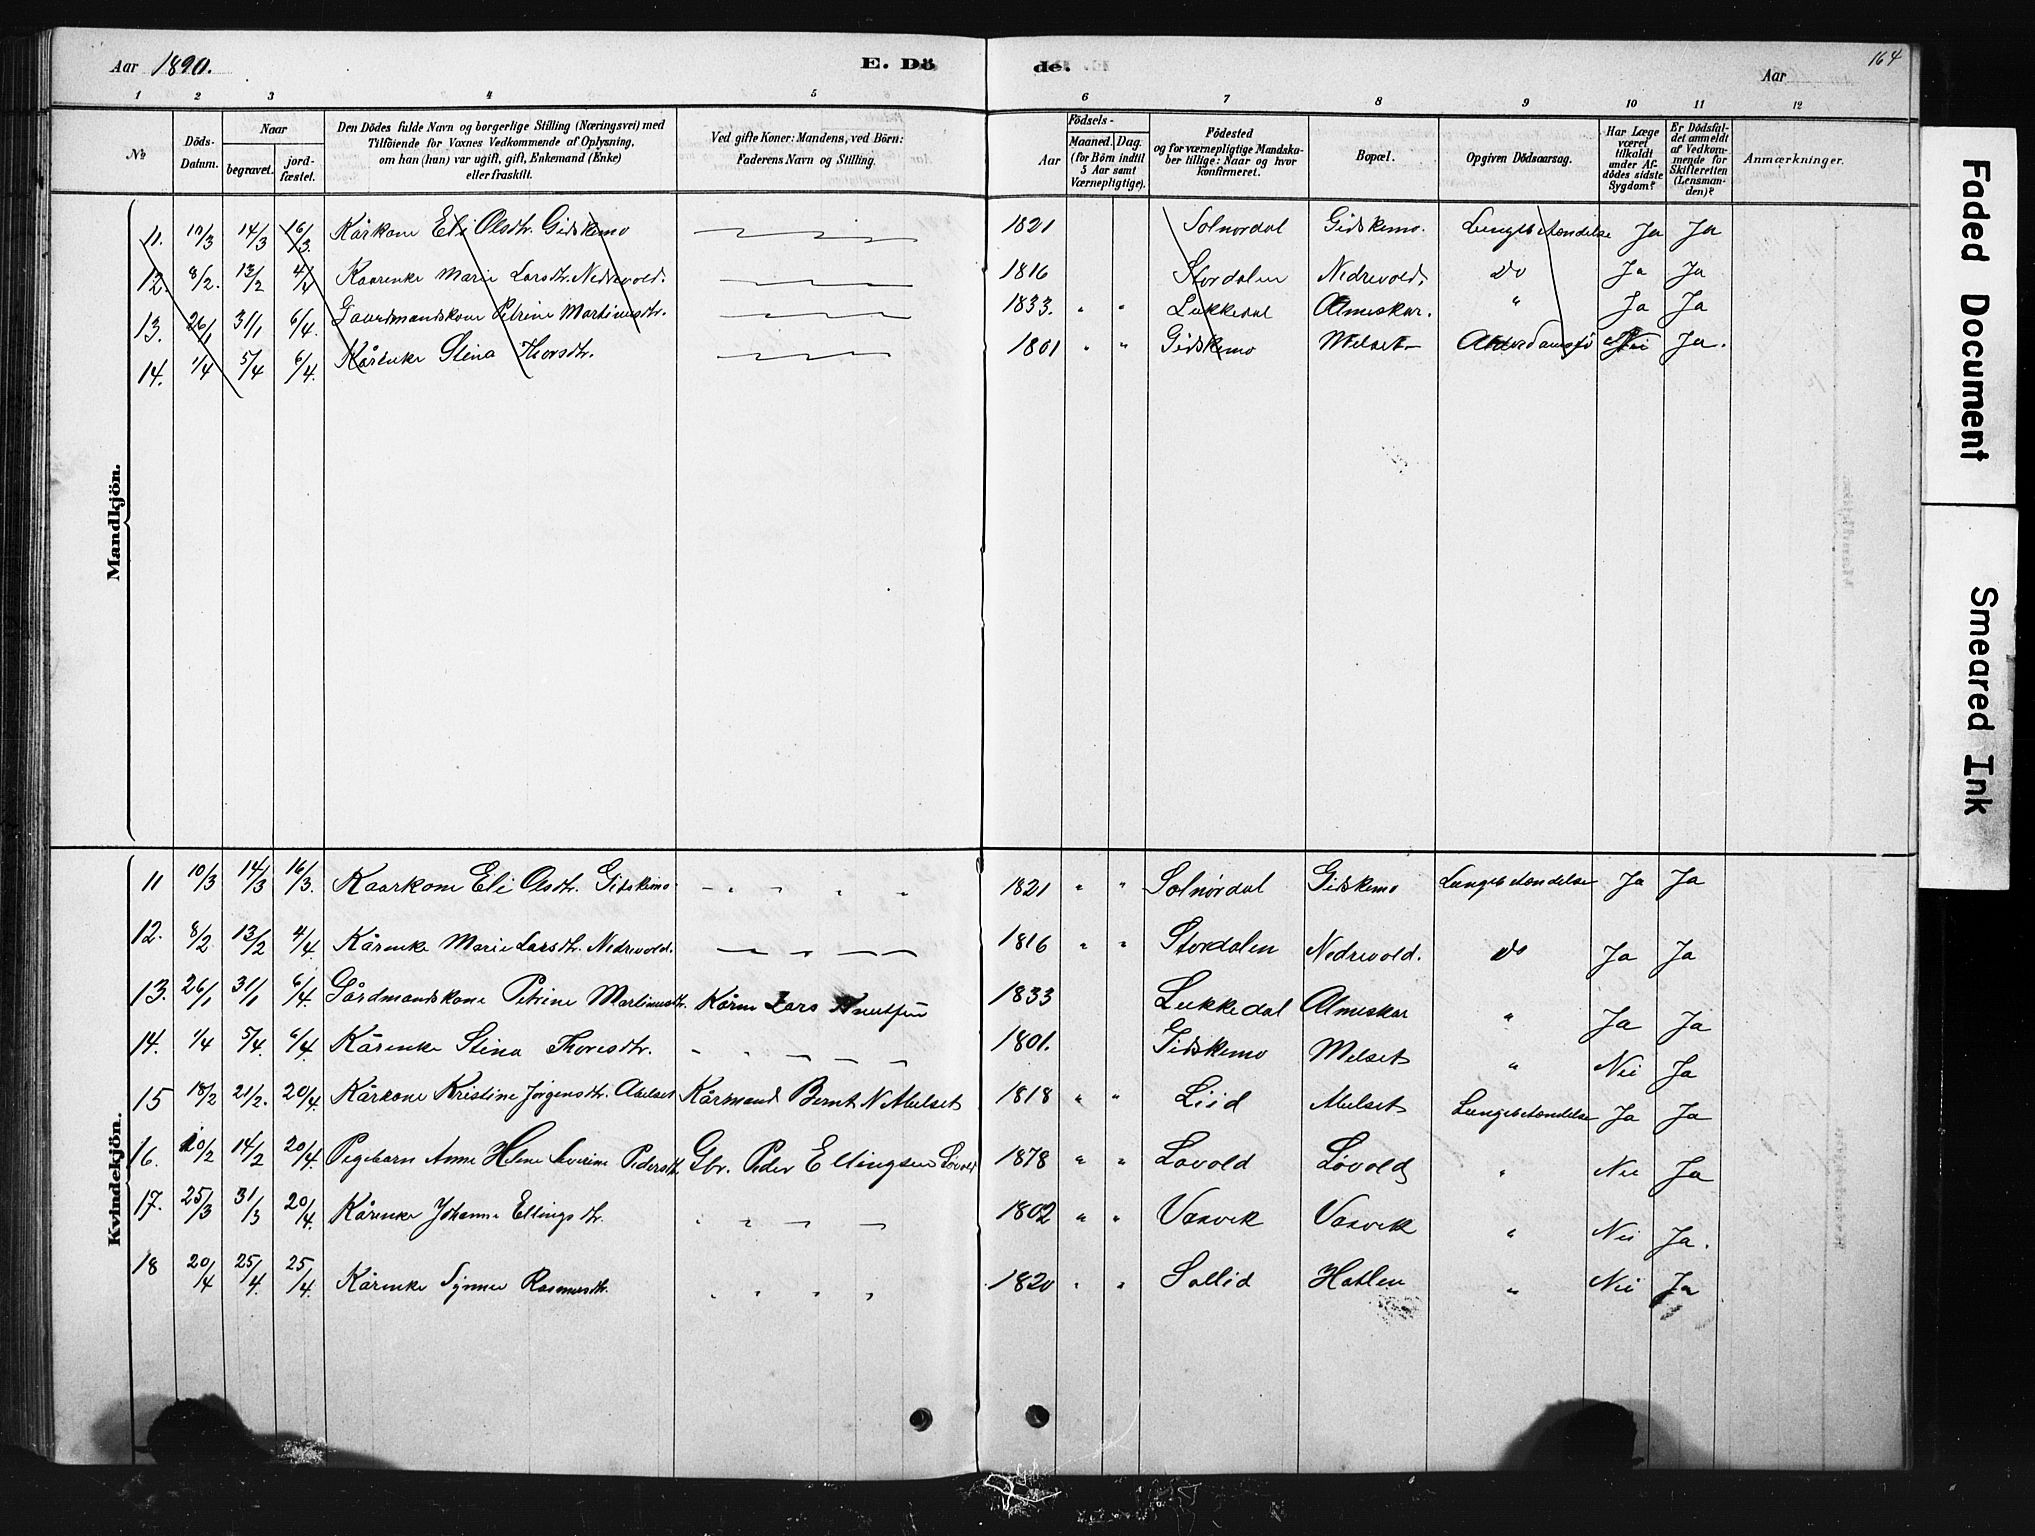 Aar 1890. E. Dö de. Aar 164
1 2 3 4 5 6 7 8 9 10 11 12
No Döds-Datum. Naar begravet. jord-fæstet. Den Dödes fulde Navn og borgerlige Stilling (Næringsvei) med Tilföiende for Voxnes Vedkommende af Oplysning, om han (hun) var ugift, gift, Enkemand (Enke) eller fraskilt. Ved gifte Koner: Mandens, ved Börn: Faderens Navn og Stilling. Aar Födsels- Maaned. Dag. (for Börn indtil 5 Aar samt Værnepligtige). Födested og for værnepligtige Mandskaber tillige: Naar og hvor konfirmeret. Bopæl. Opgiven Dödsaarsag. Har Læge været tilkaldt under Afdödes sidste Sygdom? Er Dödsfaldet anmeldt af Vedkommende for Skifteretten (Lensmanden)? Anmærkninger.
Mandkjön.
11. 10/3 14/3 16/3 Kårkone Eli Olsdtr. Gidskemo 1821 Solnordal Gidskemo. Lungebetændelse Ja Ja
12. 8/2. 13/2 4/4 Kaarenke Marie Larsdtr. Nedrevold. 1816 Stordalen Nedrevold, do Ja Ja
13. 26/1 31/1 6/4. Gaardmandskone Petrine Martinusdtr. 1833. " " Lukkedal Almeskar. " Ja Ja
14. 1/4 5/4 6/4. Kårenke Stina Thorsdtr. 1801 " " Gidskemo Melset Nei Ja.
Kvindekjön.
11 10/3 14/3 16/3. Kaarkone Eli Olsdtr. Gidskemo 1821 " " Solnördal Gidskemo Lungebetændelse Ja Ja
12. 8/2 13/2 4/4. Kårenke Marie Larsdtr. Nedrevold. 1816 " " Stordalen Nedrevold. do Ja Ja
13. 26/1 31/1 6/4. Gårdmandskone Petrine Martinusdtr. Kårm Lars Knutsen 1833 Lukkedal Almeskar " Ja Ja
14. 1/4 5/4. 6/4. Kårenke Stina Thoresdtr. 1801. Gidskemo Melset " Nei Ja
15 18/2 21/2. 20/4. Kårkone Kristine Jörgensdtr. Abelset Kårmand Bernt N Abelset 1818 " " Liid Abelset Lungebetændelse Ja Ja
16. 10/2 14/2 20/4. Pigebarn Anne Helene Severine Pedersdtr. Gbr. Peder Ellingsen Lövold 1878 " " Lovold Lövold " Nei Ja
17. 25/3 31/3 20/4. Kårenke Johanne Ellingsdtr. 1802 " " Vasvik Vasvik " Nei Ja.
18 20/4 25/4. 25/4. Kårenke Synneve Rasmusdtr. 1820 " " Sollid Hatlen " Nei Ja
Faded Document
Smeared Ink